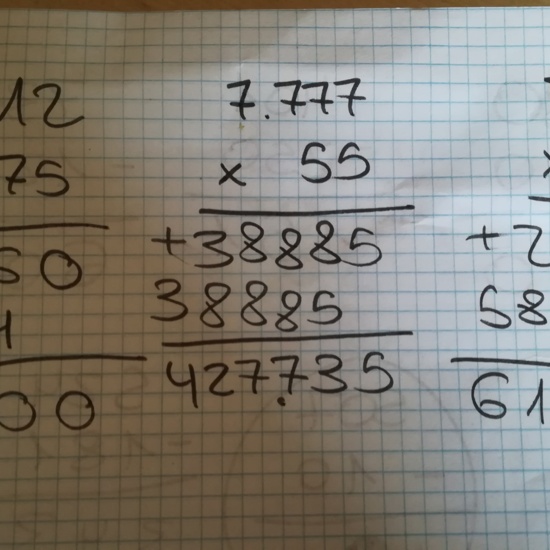 12
75
60
1
00
7.777
x 55
+38885
38885
427.735
x
+2
58
61